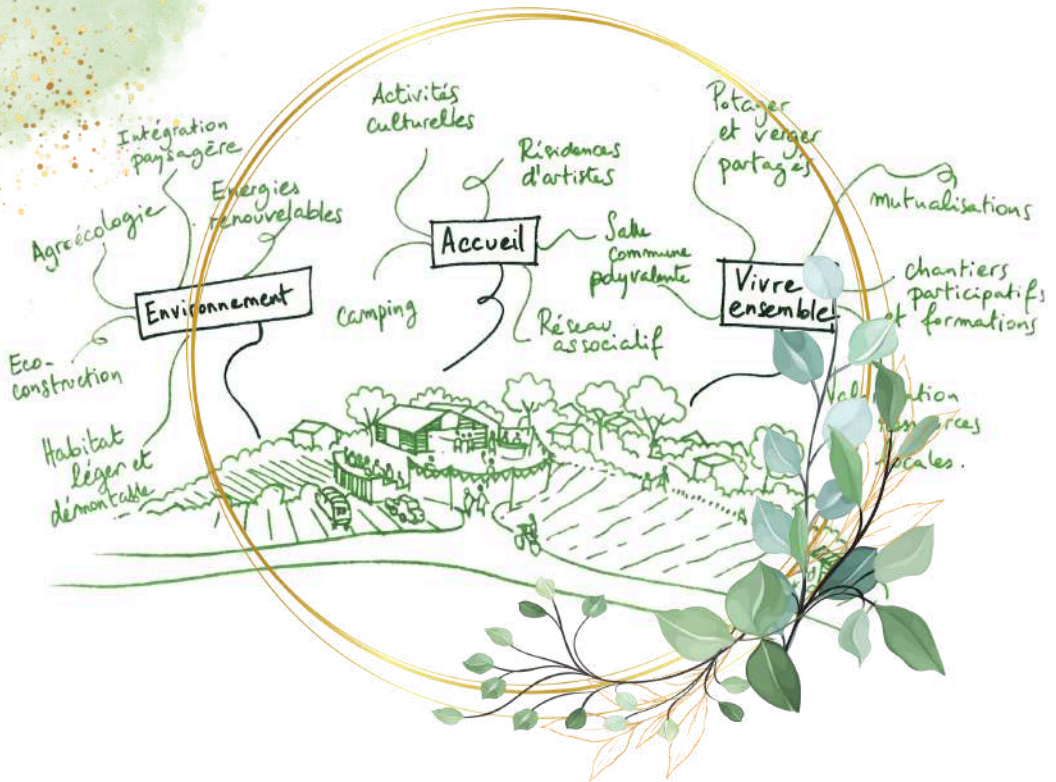 Intégration
paysagère
Energies
renouvelables
Agroécologie
Environnement
Eco-
construction
Habitat
léger et
démontable
Activités
culturelles
Résidences
d'artistes
Accueil
Salle
commune
polyvalente
Camping
Réseau
associatif
Potager
et verger
partagés
mutualisations
Vivre
ensemble
chantiers
participatifs
et formations
locales.